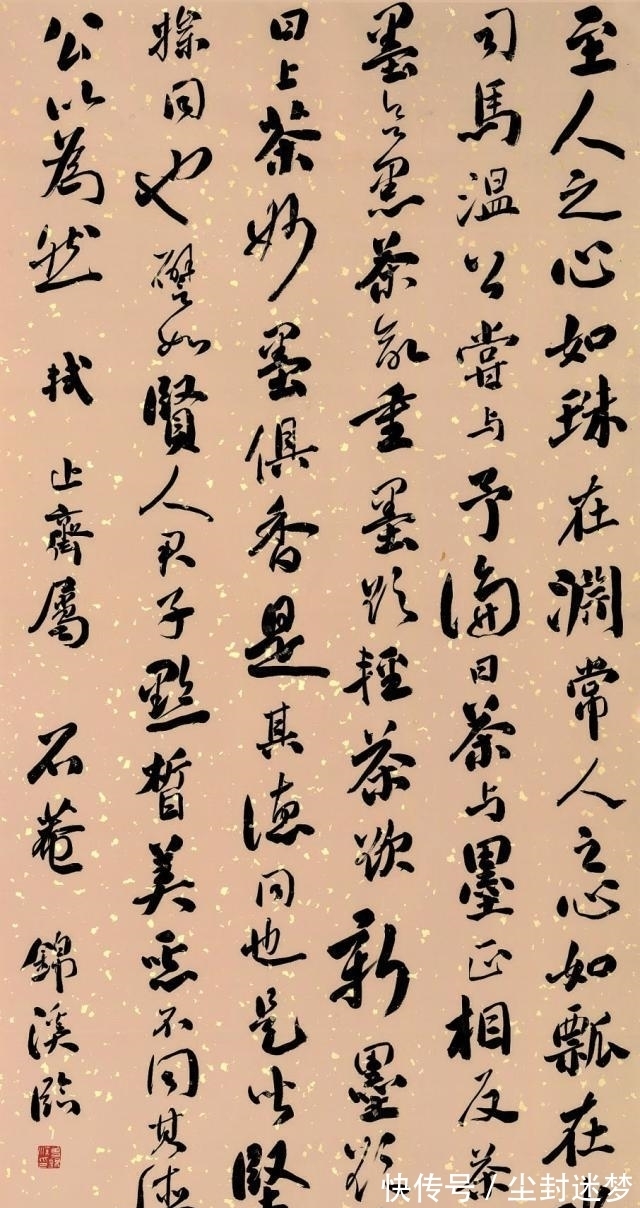 至人之心如珠在淵常人之心如瓢在
司馬温公嘗与予論曰茶与墨正相反茶
墨欲黑茶欲重墨欲輕茶欲新墨欲
曰上茶妙墨俱香是其德同也是皆堅
操同也譬如賢人君子黔皙美惡不同其德
公以為然 軾 止齋屬 石菴 錦溪臨
快传号/尘封迷梦